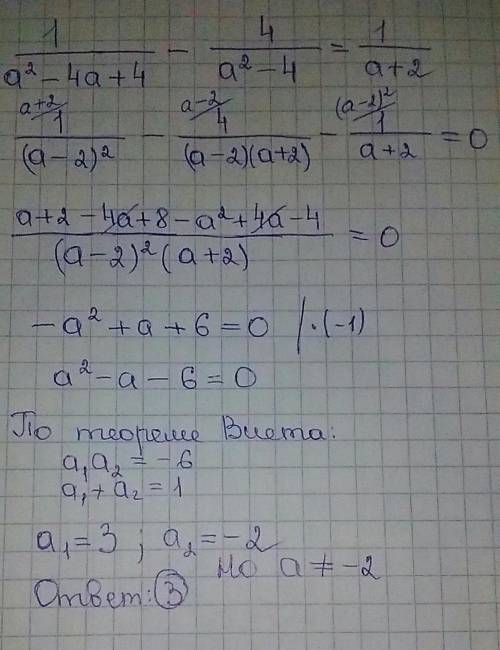 1/(a² - 4a + 4) - 4/(a² - 4) = 1/(a + 2)
a+2/ 1/(a - 2)² - a-2/ 4/((a - 2)(a + 2)) - (a-2)²/ 1/(a + 2) = 0
(a + 2 - 4a + 8 - a² + 4a - 4)/((a - 2)²(a + 2)) = 0
-a² + a + 6 = 0 /·(-1)
a² - a - 6 = 0
По теореме Виета:
a₁a₂ = -6
a₁ + a₂ = 1
a₁ = 3 ; a₂ = -2
но a ≠ -2
Ответ: 3